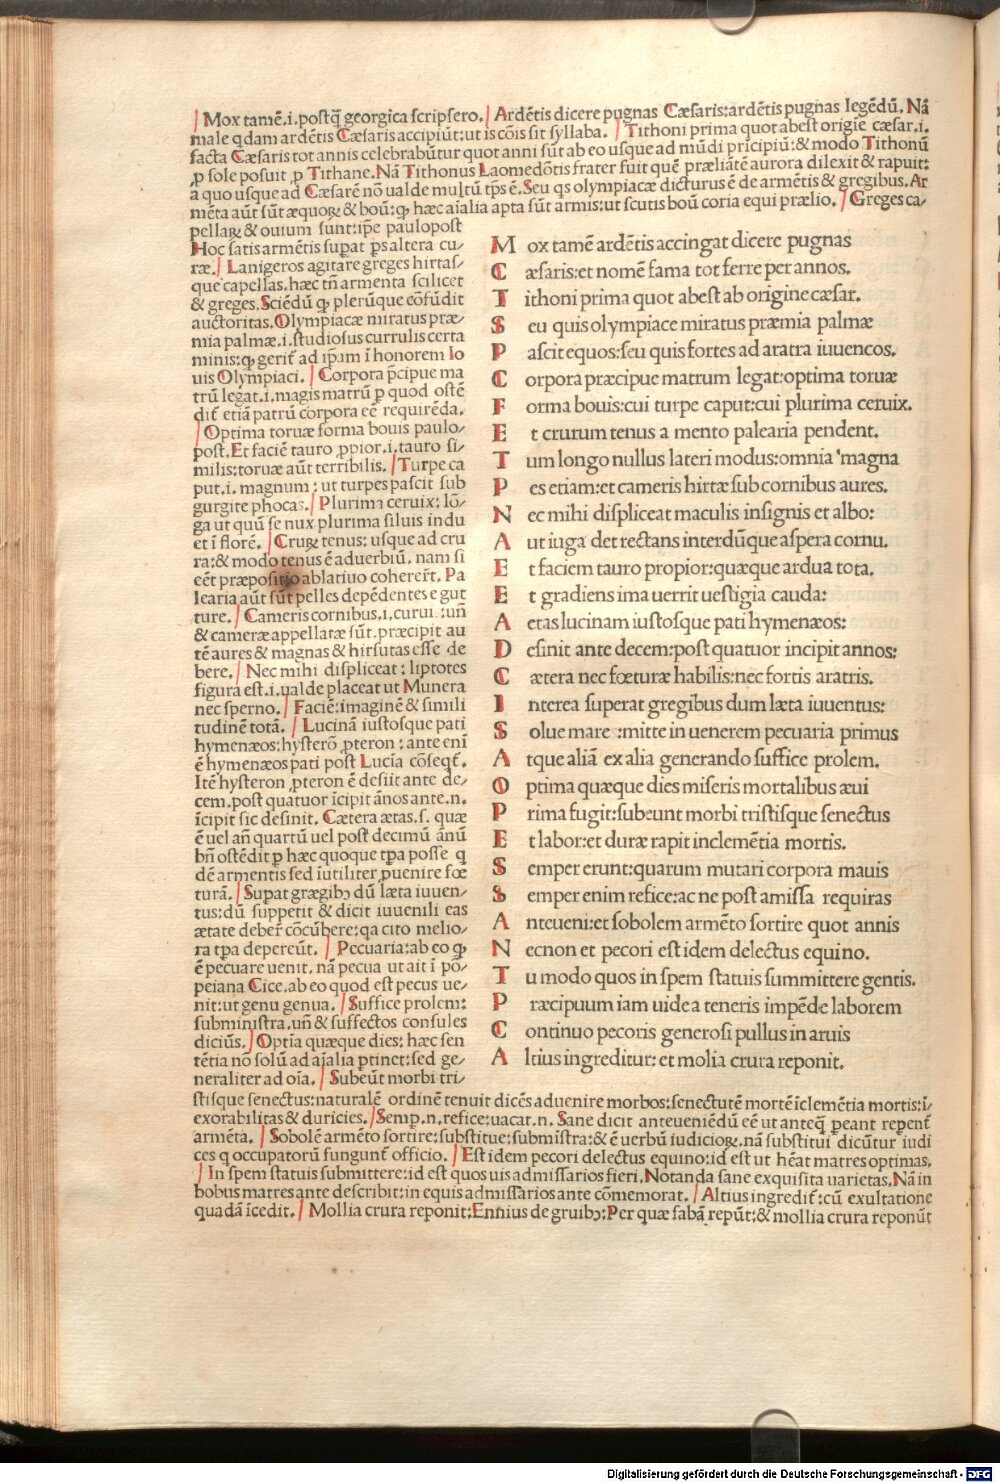 Mox tamē.i.postq̄ georgica scripsero. Ardētis dicere pugnas Cæsaris:ardētis pugnas legēdū. Nā
male qdam ardētis Cæsaris accipiūt:ut is cōis sit syllaba. Tithoni prima quot abest origie cæsar.i.
facta Cæsaris tot annis celebrabūtur quot anni sūt ab eo usque ad mūdi pricipiū:& modo Tithonū
ꝓ sole posuit ꝓ Tithane. Nā Tithonus Laomedōtis frater fuit quē præliātē aurora dilexit & rapuit:
a quo usque ad Cæsarē nō ualde multū tps ē. Seu qs olympiacæ dicturus ē de armētis & gregibus. Ar
mēta aūt sūt æquoꝝ & boū: ꝙ hæc aialia apta sūt armis:ut scutis boū coria equi prælio. Greges ca/
pellaꝝ & ouium sunt:ipse paulopost
Hoc satis armētis supat psaltera cu/
ræ. Lanigeros agitare greges hirtas/
que capellas.hæc tn̄ armenta scilicet
& greges. Sciēdū ꝙ plerūque cōfūdit
auctoritas. Olympiacæ miratus præ/
mia palmæ.i.studiosus currulis certa
minis:ꝙ gerit̄ ad ipam ī honorem Io
uis Olympiaci. Corpora p̄cipue ma
trū legat.i.magis matrū p quod ostē
dit etiā patrū corpora eē requirēda.
Optima toruæ forma bouis paulo/
post. Et faciē tauro ꝓpior.i.tauro si/
milis:toruæ aūt terribilis. Turpe ca
put.i. magnum: ut turpes pascit sub
gurgite phocas. Plurima ceruix: lō/
ga ut quū se nux plurima siluis indu
et ī florē. Cruꝝ tenus: usque ad cru
ra:& modo tenus ē aduerbiū. nam si
eēt præpositio ablatiuo cohereret. Pa
learia aūt sūt pelles depēdentes e gut
ture. Cameris cornibus.i.curui :un̄
& cameræ appellatæ sūt.præcipit au
tē aures & magnas & hirsutas esse de
bere. Nec mihi displiceat: liptotes
figura est.i.ualde placeat ut Munera
nec sperno. Faciē:imaginē & simili
tudinē totā. Lucinā iustosque pati
hymenæos:hysterō ꝓteron: ante eni
ē hymenæos pati post Lucia cōseqt̄.
Itē hysteron ꝓteron ē desiit ante de/
cem.post quatuor īcipit ānos ante.n.
īcipit sic desinit. Cætera ætas.s. quæ
ē uel an̄ quartū uel post decimū ānū
bn̄ ostēdit p hæc quoque tpa posse q
dē armentis sed iutiliter ꝓuenire fœ
turā. Supat grægibꝫ dū læta iuuen/
tus:dū suppetit & dicit iuuenili eas
ætate deber̄ cōcūbere:qa cito melio/
ra tpa depereūt. Pecuaria:ab eo ꝙ
ē pecuare uenit. nā pecua ut ait ī pō/
peiana Cice.ab eo quod est pecus ue/
nit:ut genu genua. Suffice prolem:
subministra.un̄ & suffectos consules
diciūs. Optia quæque dies: hæc sen
tētia nō solū ad aialia ptinet:sed ge/
neraliter ad oīa. Subeūt morbi tri/
stisque senectus:naturalē ordinē tenuit dicēs aduenire morbos:senectutē mortē īclemētia mortis:ī/
exorabilitas & duricies. Semp.n.refice:uacar.n. Sane dicit anteueniēdū eē ut anteq̄ peant repent̄
armēta. Sobolē armēto sortire:substitue:submistra:& ē uerbū iudicioꝝ.nā substitui dicūtur iudi
ces q occupatorū fungunt̄ officio. Est idem pecori delectus equino:id est ut hēat matres optimas.
In spem statuis submittere:id est quos uis admissarios fieri. Notanda sane exquisita uarietas. Nā in
bobus matres ante describit:in equis admissarios ante cōmemorat. Altius ingredit̄:cū exultatione
quadā īcedit. Mollia crura reponit:Ennius de gruibꝫ:Per quæ fabā repūt:& mollia crura reponūt
Mox tamē ardētis accingat dicere pugnas
Cæsaris:et nomē fama tot ferre per annos.
Tithoni prima quot abest ab origine cæsar.
Seu quis olympiace miratus præmia palmæ
Pascit equos:seu quis fortes ad aratra iuuencos.
Corpora præcipue matrum legat:optima toruæ
Forma bouis:cui turpe caput:cui plurima ceruix.
Et crurum tenus a mento palearia pendent.
Tum longo nullus lateri modus:omnia magna
Pes etiam:et cameris hirtæ sub cornibus aures.
Nec mihi displiceat maculis insignis et albo:
Aut iuga detrectans interdūque aspera cornu.
Et faciem tauro propior:quæque ardua tota.
Et gradiens ima uerrit uestigia cauda:
Aetas lucinam iustosque pati hymenæos:
Desinit ante decem:post quatuor incipit annos:
Cætera nec fœturæ habilis:nec fortis aratris.
Interea superat gregibus dum læta iuuentus:
Solue mare :mitte in uenerem pecuaria primus
Atque aliā ex alia generando suffice prolem.
Optima quæque dies miseris mortalibus æui
Prima fugit:subeunt morbi tristisque senectus
Et labor:et duræ rapit inclemētia mortis.
Semper erunt:quarum mutari corpora mauis
Semper enim refice:ac ne post amissa requiras
Anteueni:et sobolem armēto sortire quot annis
Necnon et pecori est idem delectus equino.
Tu modo quos in spem statuis summittere gentis.
Præcipuum iam uide a teneris impēde laborem
Continuo pecoris generosi pullus in aruis
Altius ingreditur: et molia crura reponit.
Digitalisierung gefördert durch die Deutsche Forschungsgemeinschaft - DFG